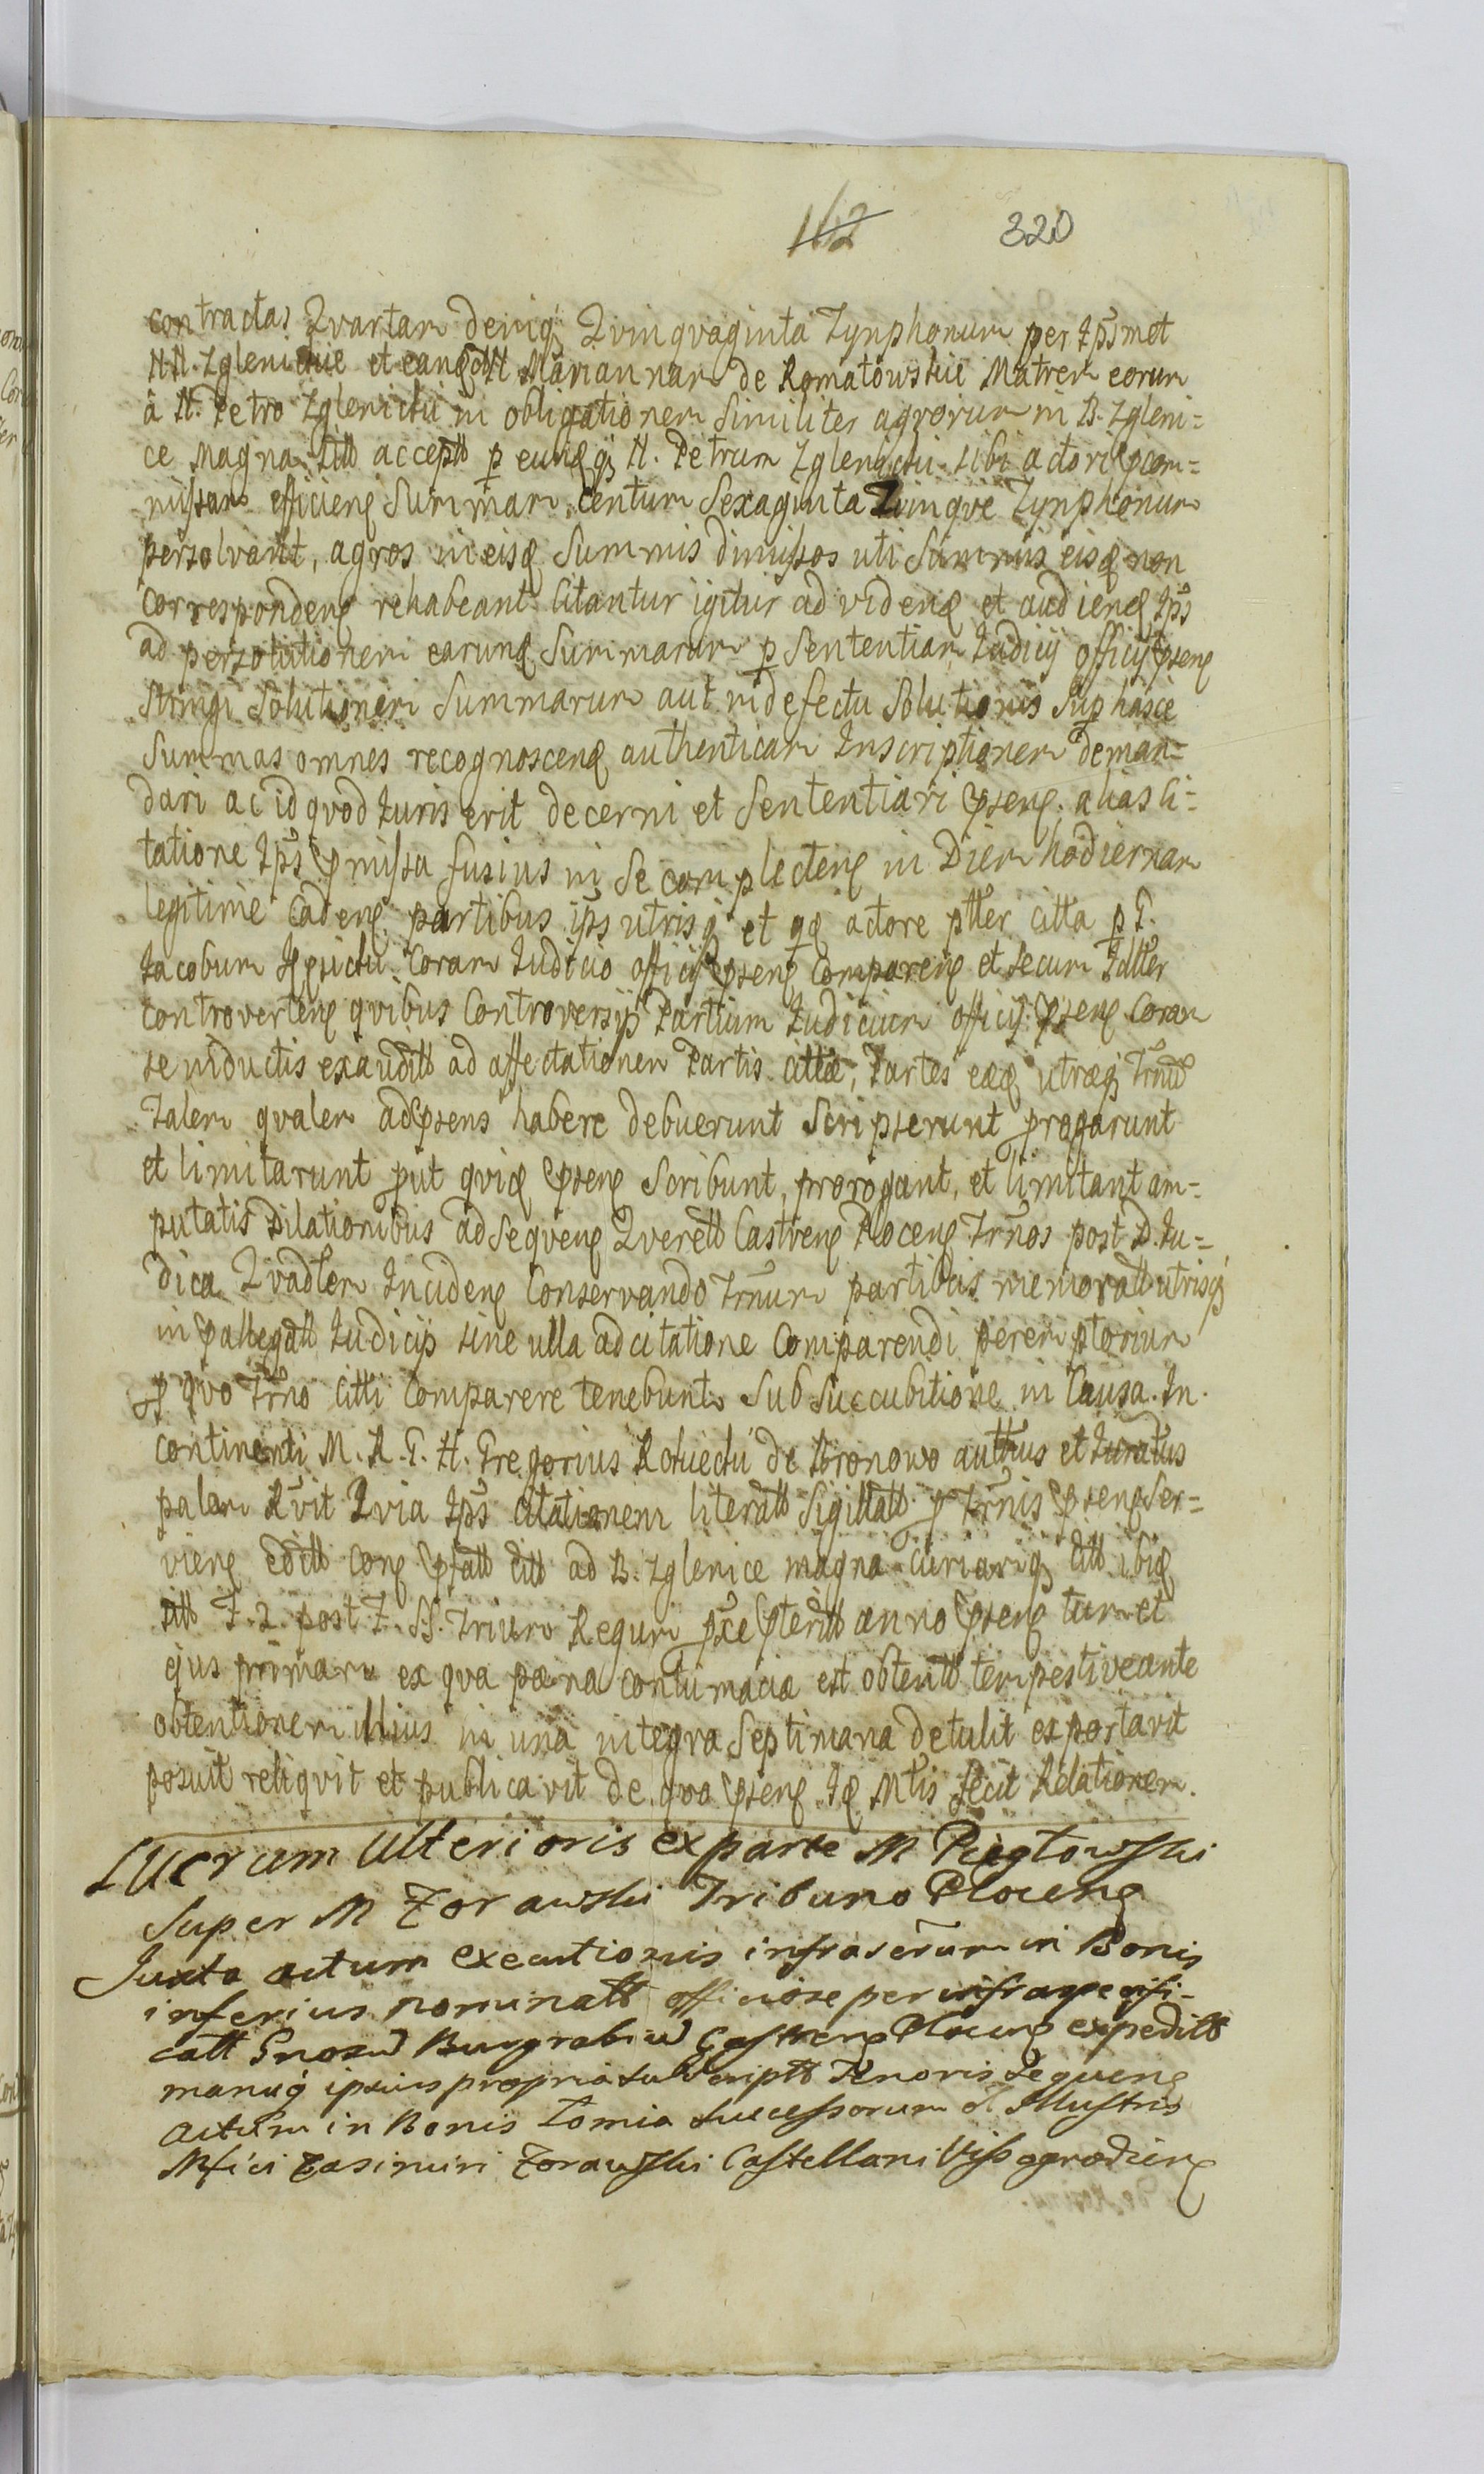 162 320
contractas Qvartam deniq₃ Qvinqvaginta Tynphonum per Ipsmet
NN. Zglenickie et eand. N. Mariannam de Romatowskie Matrem eorum
à N. Petro Zglenicki in obligationem similiter agrorum in B. Zgleni=
ce Magna sitt acceptt p eundq₃ N. Petrum Zglenicki sibi actori com=
missam efficien Summam Centum Sexaginta Qvinqve Tynphonum
persolvant, agros in eisd Summis dimissos uti Summis eisd non
Corresponden rehabeant. Citantur igitur ad viden et audien Ips
ad persolutionem earund Summarum p Sententiam Judicij officij psen
stringi Solutionem Summarum aut in defectu Solutionis Sup hasce
Summas omnes recognoscen authenticam Inscriptionem deman=
dari ac id qvod Juris erit decerni et Sententiari psen. alias Ci=
tatione Ips pmissa fusius in se complecten in Diem hodiernam
legitime Caden partibus ips utrisq₃ et qd actore ptter citta p G.
Jacobum coram Judicio officij psen Comparen et secum Idtter
controverten qvibus Controversijs Partium Judicium officij psen coram
se inductis exauditt ad affectationem Partis cittæ, Partes eæd utræq₃ Trnũ
Talem qvalem ad psens habere debuerunt Scripserunt progarunt
et limitarunt put qvid psen Scribunt, prorogant, et limitant am=
putatis Dilationibus ad Seqven Qverett Castren Plocen Trnos post D. Ju=
dica Qvadlem Inciden Conservando Trnum partibus memoratt utrisq₃
in pallegatt Judicijs sine ulla adcitatione Comparendi peremptorium
p qvo Trno citti Comparere tenebunt Sub Succubitione in Causa. In
continenti M. R. G. N. Gregorius de Bronowo autthus et Juratus
palam Rvit Qvia Ips Citationem literatt Sigillatt p Trnis psen Ser=
vien editt con pfatt citt ad B. Zglenice magna curiamq₃ citt ibid
sitt F. 2. post F. SS. Trium Regum pxe pteritt anno psen tum et
ejus primam ex qva pæna contumaciæ est obtentt tempestive ante
obtentionem illius in una integra Septimana detulit exportavit
posuit reliqvit et publicavit de qva psen Id Mtis fecit Relationem.
Lucrum Ulterioris ex parte M Pięgłowski
Super M Zorawski Tribuno Plocen
Juxta actum executionis infrasērum in Bonis
inferius nominatt officiose per infraspecifi-
catt Gnosũ Burgrabiũ Castren Plocen expeditt
manuq́ ipsius propria subscriptt Tenoris sequen
actum in Bonis Łomia Successorum ol Illustris
Mfici Casimiri Zorawski Castellani Vissogrodien